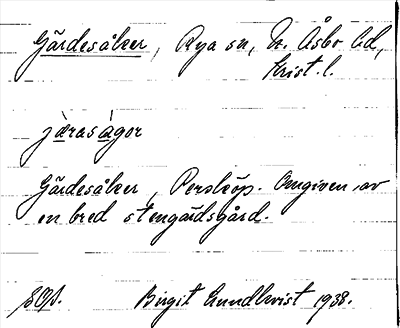 Gärdesåker, Rya sn, N. Åsbo hd,
Krist. l.
järasågor
Gärdesåker, Perstorp. Omgiven av
en bred stengärdsgård.
Birgit Lundkvist 1938.